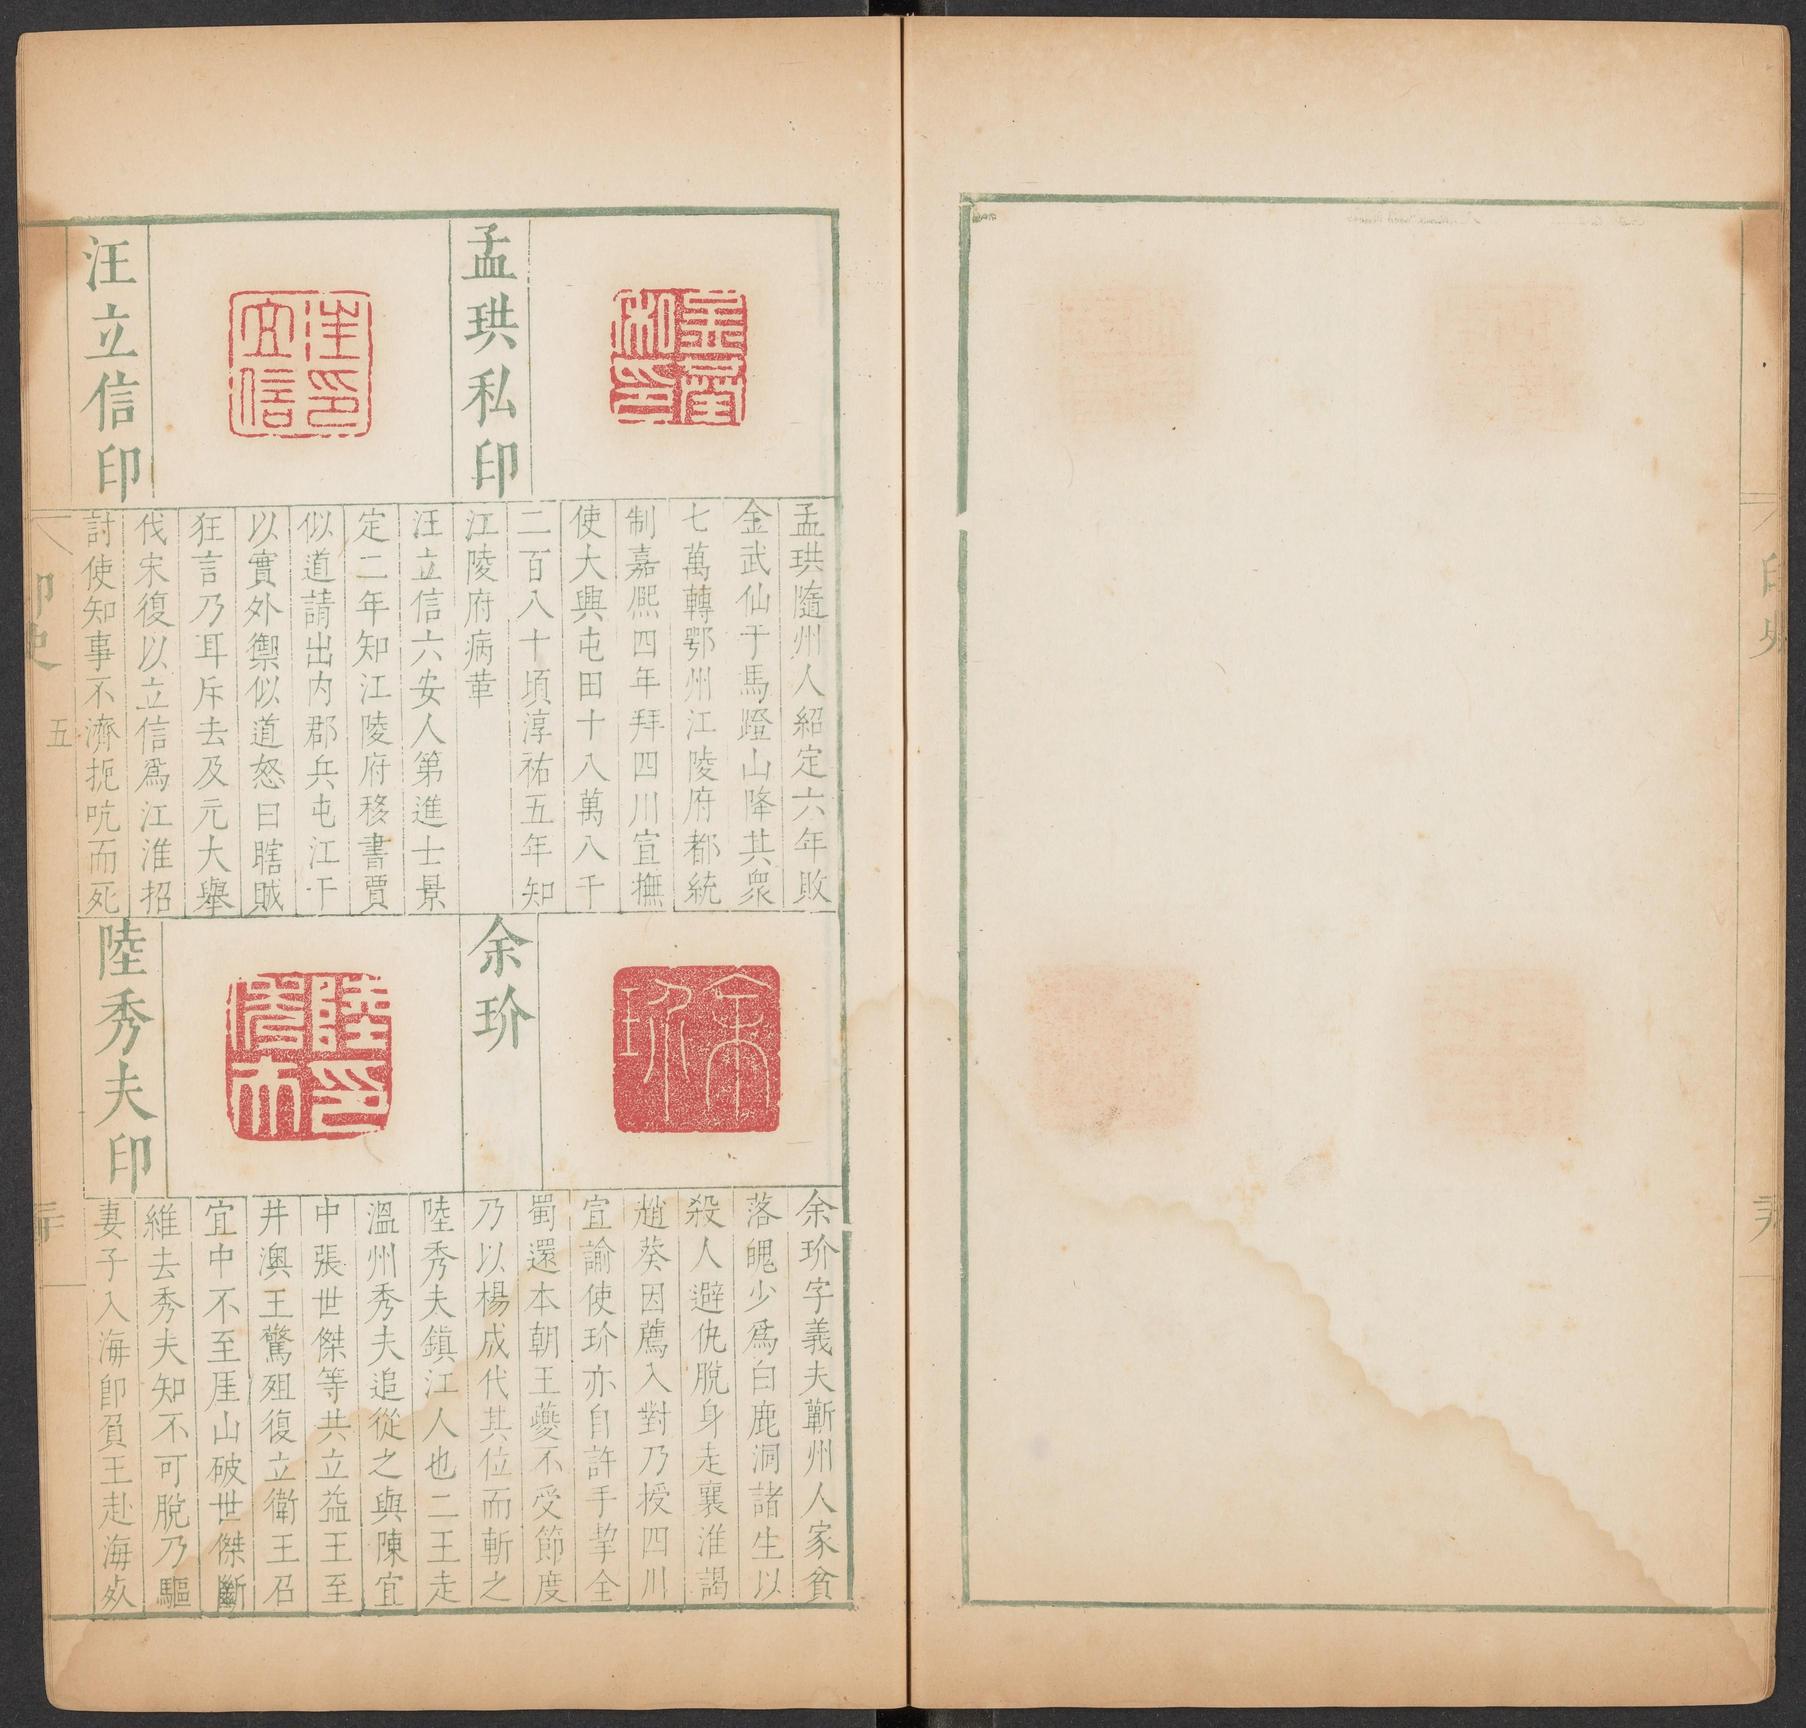 孟珙私印
孟珙隨州人紹定六年敗
金武仙于馬蹬山降其衆
七萬轉鄂州江陵府都統
制嘉熈四年拜四川宣撫
使大興屯田十八萬八千
二百八十頃淳祐五年知
江陵府病革
汪立信印
汪立信六安人第進士景
定二年知江陵府移書賈
似道請出内郡兵屯江干
以實外禦似道怒曰瞎賊
狂言乃耳斥去及元大舉
伐宋復以立信爲江淮招
討使知事不濟扼吭而死
余玠
余玠字義夫蘄州人家貧
落魄少爲白鹿洞諸生以
殺人避仇脫身走襄淮謁
趙葵因薦入對乃授四川
宣諭使玠亦自許手挈全
蜀還本朝王夔不受節度
乃以楊成代其位而斬之
陸秀夫印
陸秀夫鎮江人也二王走
溫州秀夫追從之與陳宜
中張世傑等共立益王至
井澳王驚殂復立衛王召
宜中不至厓山破世傑斷
維去秀夫知不可脫乃驅
妻子入海卽負王赴海死
印史
五